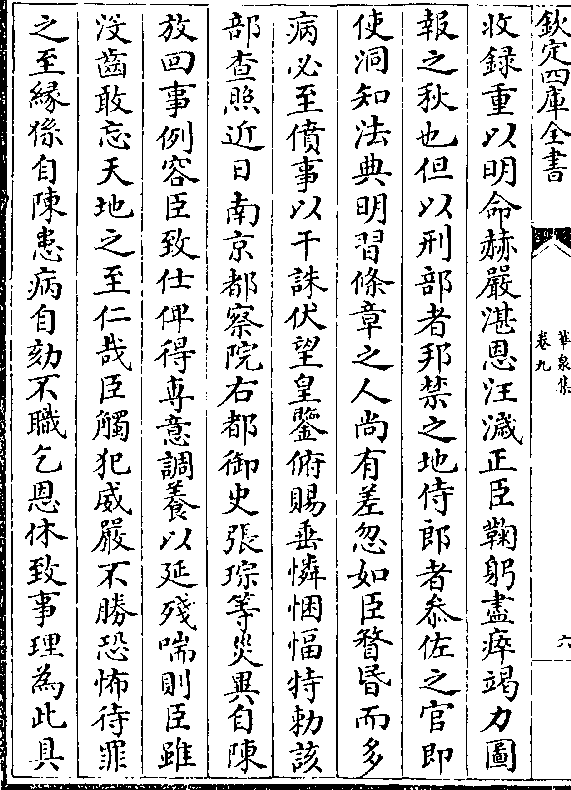 欽定四庫全書
華泉集
卷九
六
收録重以明命赫嚴湛恩汪濊正臣鞠躬盡瘁竭力圖
報之秋也但以刑部者邦禁之地侍郎者叅佐之官即
使洞知法典明習條章之人尚有差忽如臣瞀昏而多
病必至僨事以干誅伏望皇鑒俯賜垂憐悃愊特勅該
部查照近日南京都察院右都御史張琮等災異自陳
放回事例容臣致仕俾得專意調養以延殘喘則臣雖
沒齒敢忘天地之至仁哉臣觸犯威嚴不勝恐怖待罪
之至縁係自陳患病自劾不職乞恩休致事理為此具